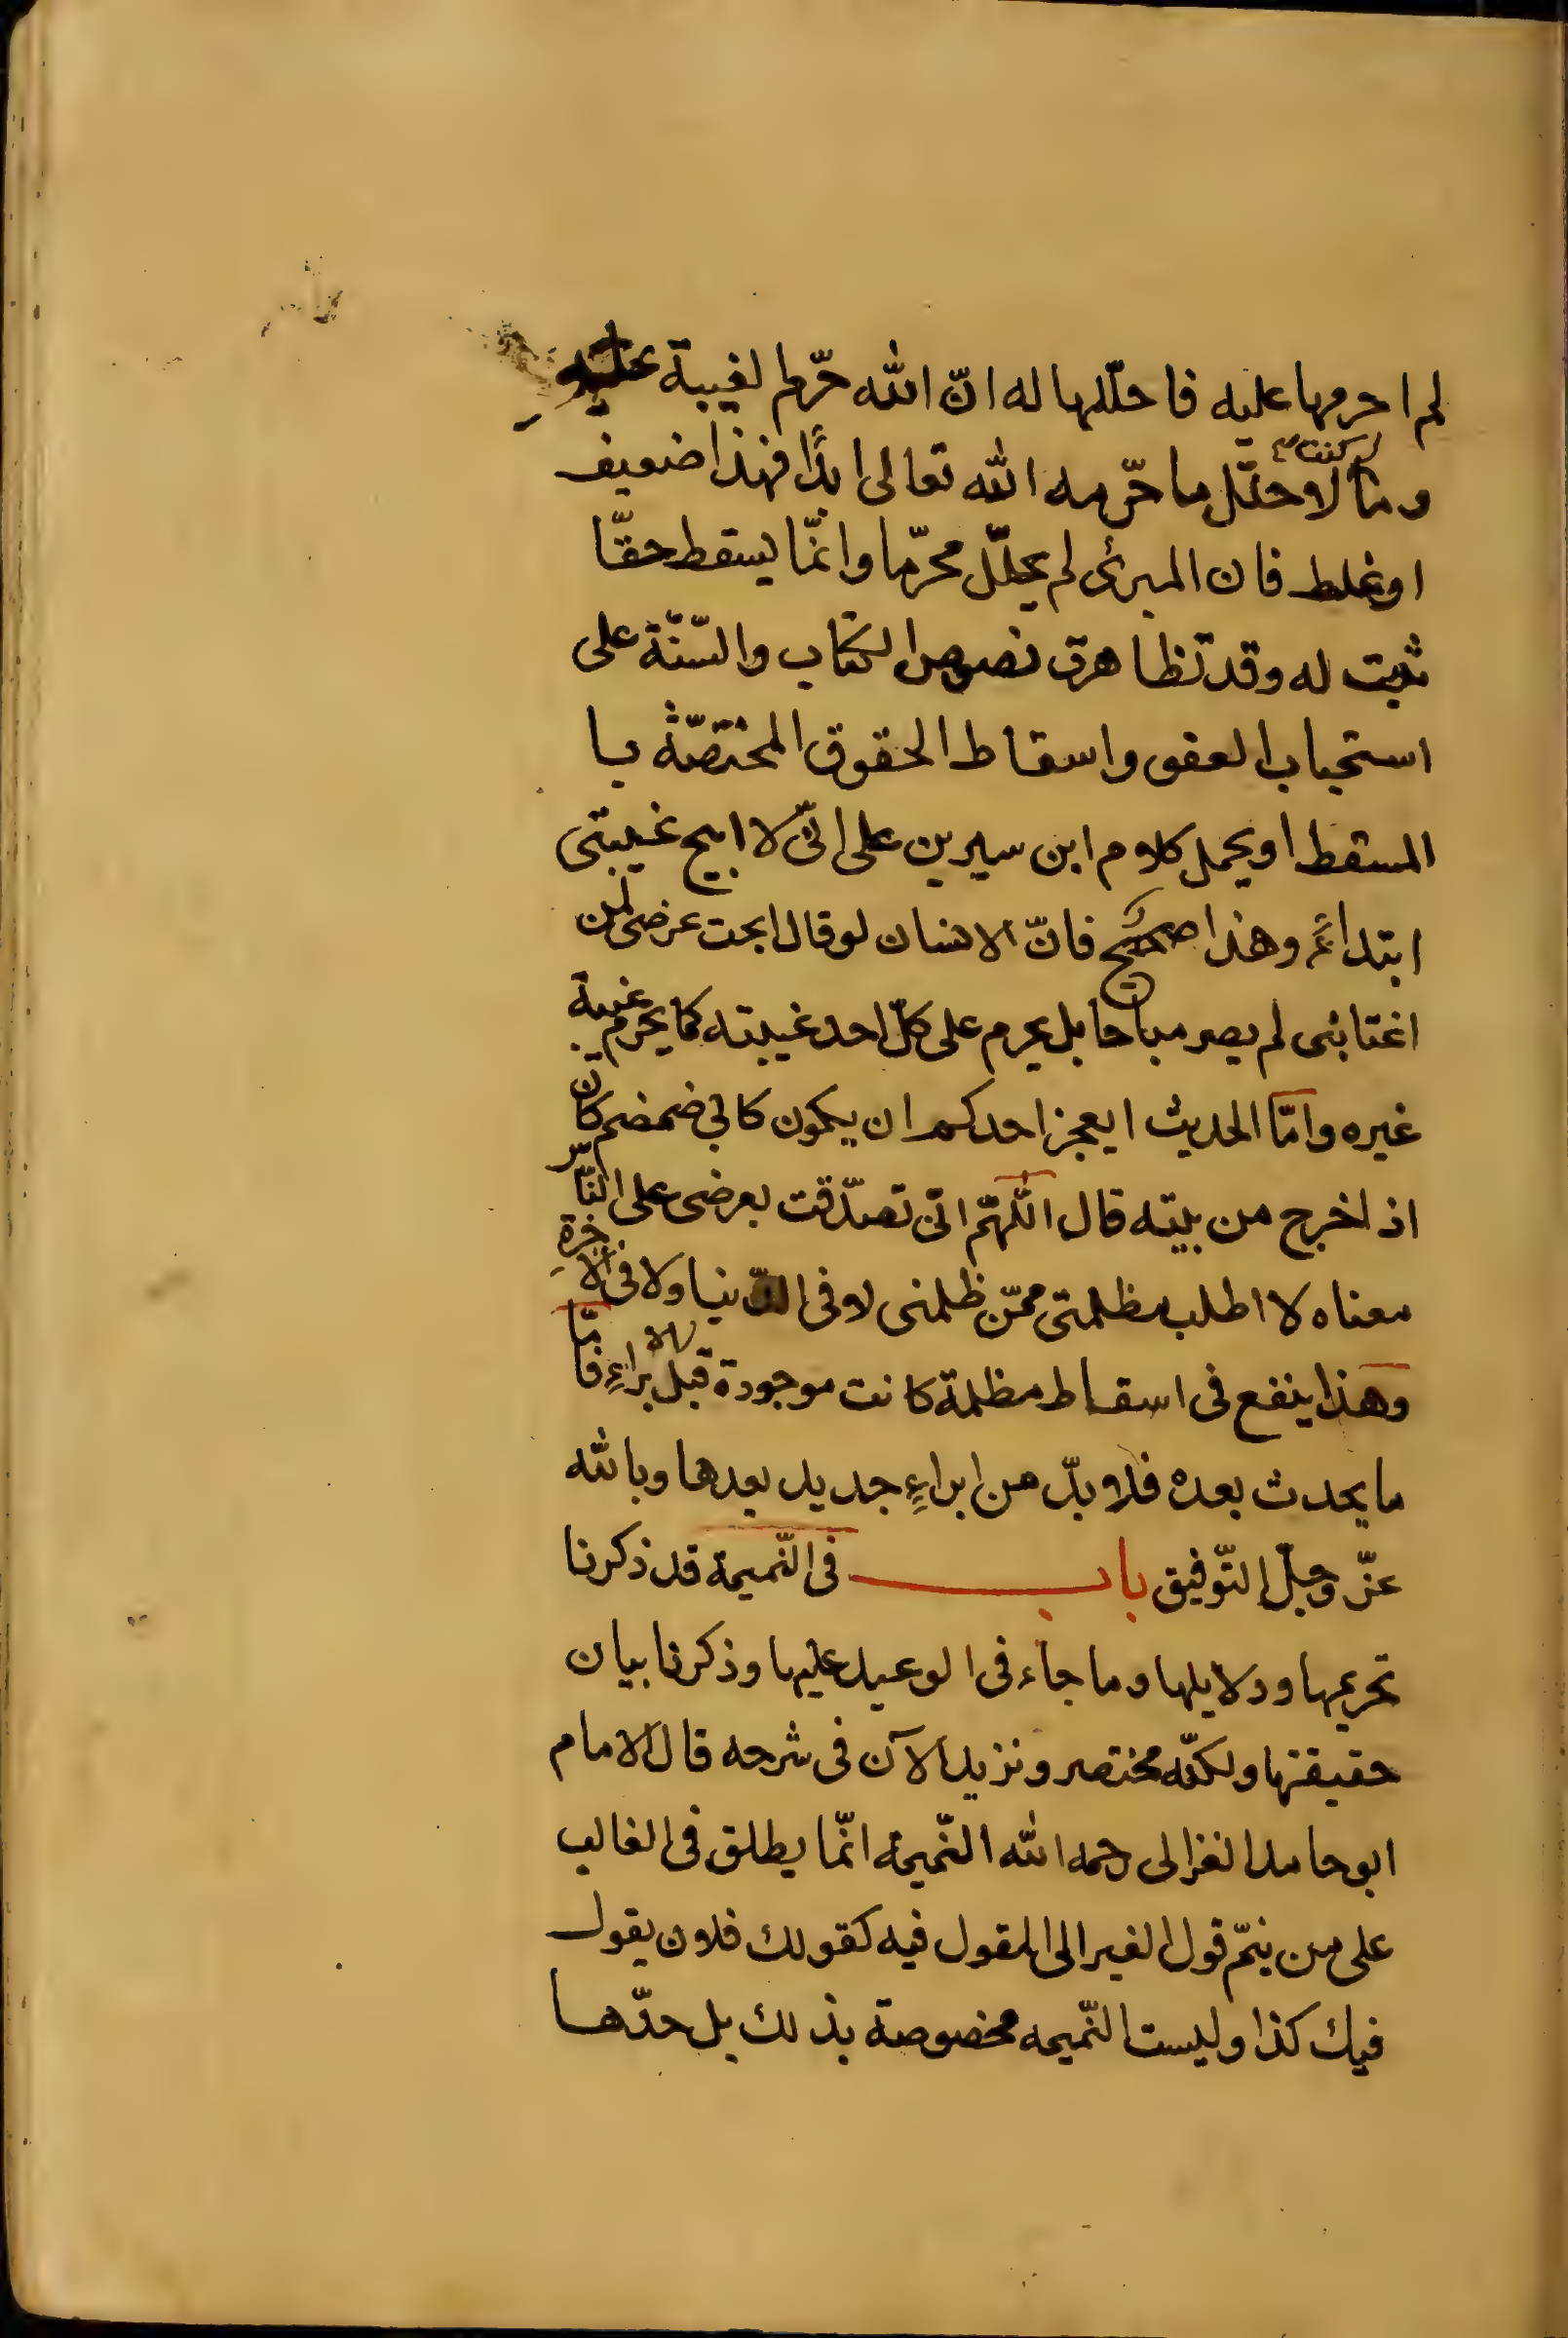 لم احرمها عليه فاحلّلها له انّ الله حرّم الغيبة عليه
وما كنت لاحلّل ما حرّمه الله تعالى ابدًا فهذا ضعيف
او غلط فان المبرئ لم يحلّل محرّما وانّما يسقط حقّا
ثبت له وقد تظاهرت نصوص الكتاب والسّنّة على
استحباب العفو واسقاط الحقوق المختصّة با
المسقط او يحمل كلام ابن سيرين على انّى لا ابيح غيبتى
ابتداءً وهذا صحيح فانّ الانسان لو قال ابحت عرضى لمن
اغتابنى لم يصر مباحا بل يحرم على كلّ احد غيبته كما يحرم غيبة
غيره وامّا الحديث ايعجز احدكم ان يكون كابي ضمضم كان
اذا خرج من بيته قال اللّهمّ انّى تصدّقت بعرضى على النّاس
معناه لا اطلب مظلمتى ممّن ظلمنى لا فى الدّنيا ولا فى الاخرة
وهذا ينفع فى اسقاط مظلمة كانت موجودة قبل الابراءِ فامّا
ما يحدث بعده فلا بدّ من ابراءِ جديد بعدها وبالله
عزّ وجلّ التّوفيق باب فى النّميمة قد ذكرنا
تحريمها ودلايلها وما جاء فى الوعيد عليها وذكرنا بيان
حقيقتها ولكنّه مختصر ونزيد الآن فى شرحه قال الامام
ابو حامد الغزالى رحمه الله النّميمة انّما يطلق فى الغالب
على من ينمّ قول الغير الى المقول فيه كقولك فلان يقول
فيك كذا وليست النّميمه مخصوصة بذلك بل حدّها